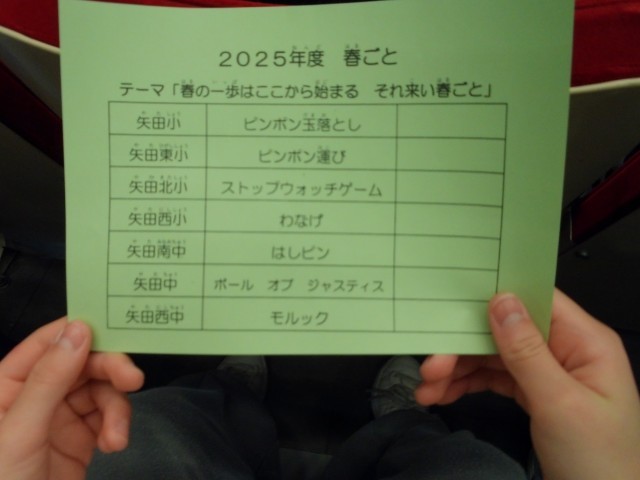 2025年度 春ごと
テーマ「春の一歩はここから始まる それ来い春ごと」
矢田小 ピンポン玉落とし
矢田東小 ピンポン運び
矢田北小 ストップウォッチゲーム
矢田西小 わなげ
矢田南中 はしピン
矢田中 ボール オブ ジャスティス
矢田西中 モルック